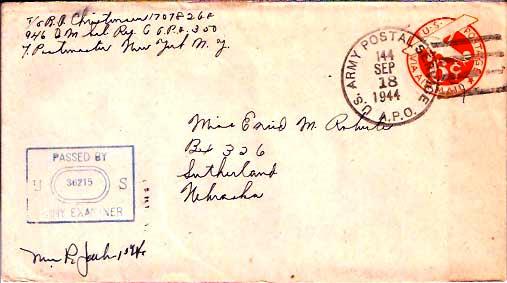 T/5 R.A. Christensen 17078260
946 Q M
A.P.O. 300
℅ Postmaster New York N.Y.
U.S. ARMY POSTAL SERVICE
144
SEP
18
1944
A.P.O.
U.S. POSTAGE
VIA AIR MAIL
6c
Miss Enid M. Roberts
Box 326
Sutherland
Nebraska
PASSED BY
U 36215 S
ARMY EXAMINER